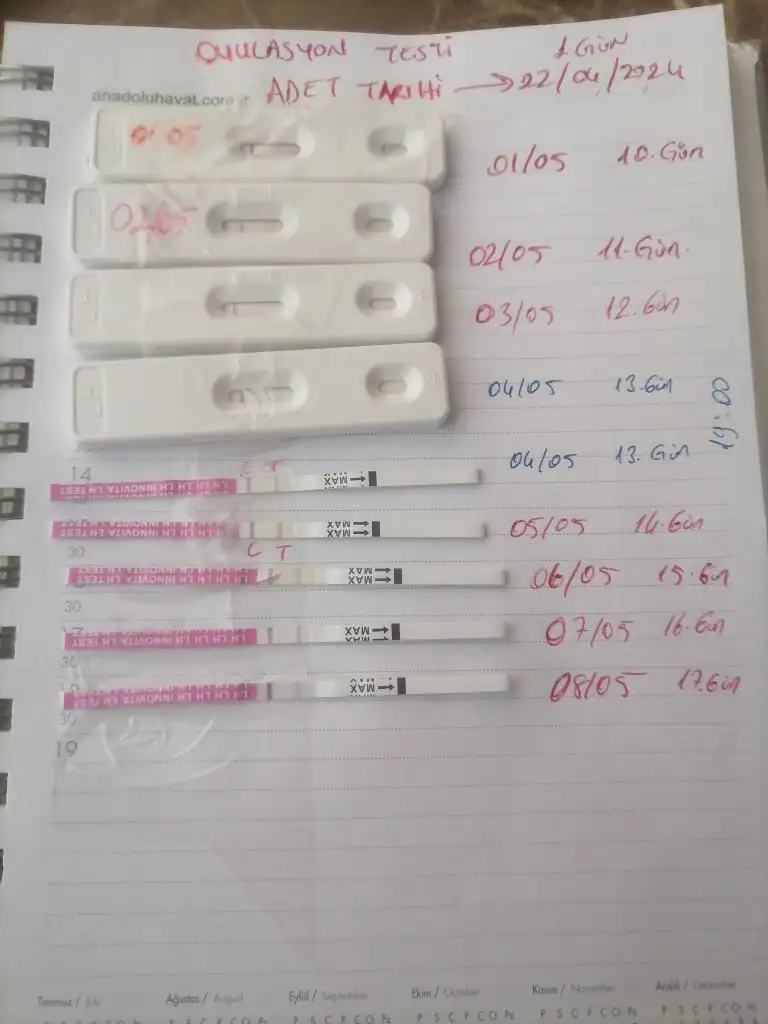 OVULASYON TESTİ 1.GÜN
anadoluhayat.com.tr ADET TARİHİ → 22/04/2024
01 05
01/05 10.Gün
02/05
02/05 11.Gün.
03/05 12.Gün
04/05 13.Gün
19:00
04/05 13.Gün
14
C T
LH LH LH INNOVITA LH LH TEST
MAX
05/05 14.Gün
LH LH LH INNOVITA LH LH TEST
MAX
30
C T
06/05 15.Gün
LH LH LH INNOVITA LH LH TEST
MAX
30
07/05 16.Gün
MAX
30
08/05 17.Gün
MAX
30
19
Temmuz / July Ağustos / August Eylül / September Ekim / October Kasım / November Aralık / December
P S Ç P C C Pz